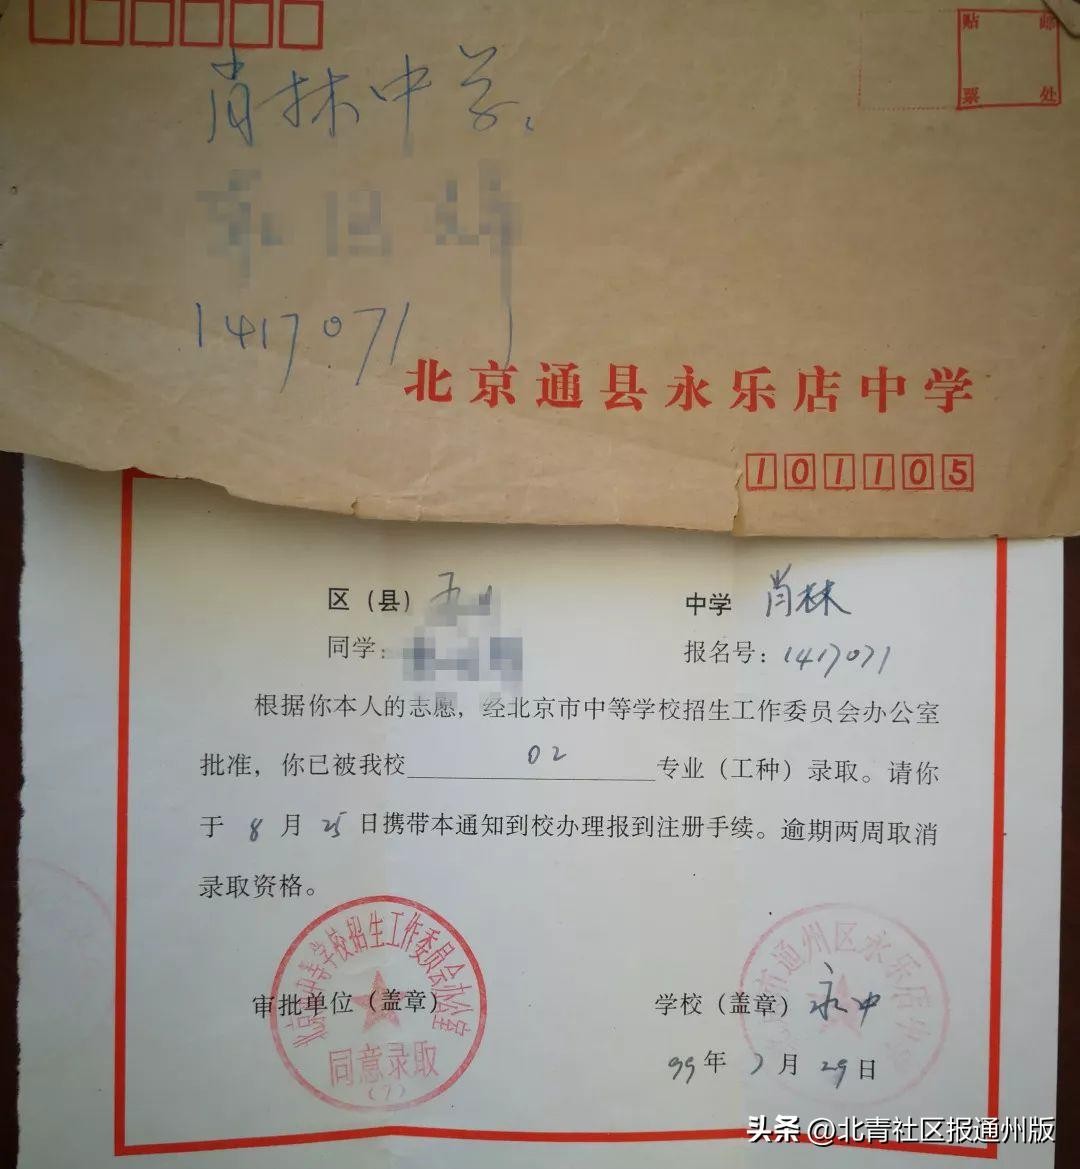 贴 邮
票 处
肖林中学
1417071
北京通县永乐店中学
101105
区（县） 中学 肖林
同学： 报名号：1417071
根据你本人的志愿，经北京市中等学校招生工作委员会办公室
批准，你已被我校 02 专业（工种）录取。请你
于 8 月 25 日携带本通知到校办理报到注册手续。逾期两周取消
录取资格。
北京市中等学校招生工作委员会办公室
同意录取
（7）
审批单位（盖章）
市通州区永乐店中学
学校（盖章） 永中
99 年 7 月 29 日
头条 @北青社区报通州版